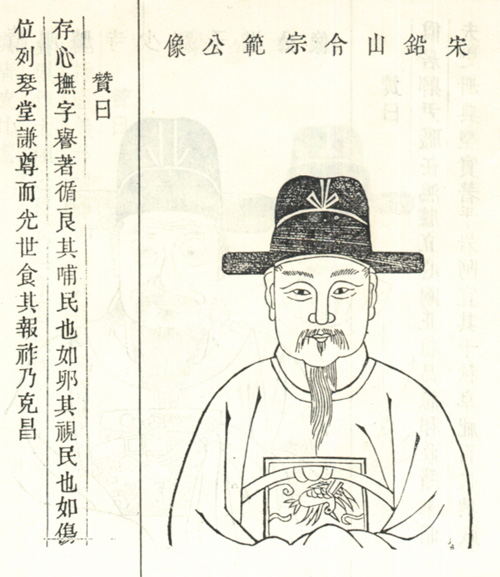 宋鉛山令宗範公像
贊曰
存心撫字譽著循良其哺民也如卵其視民也如傷
位列琴堂謙尊而光世食其報祚乃克昌